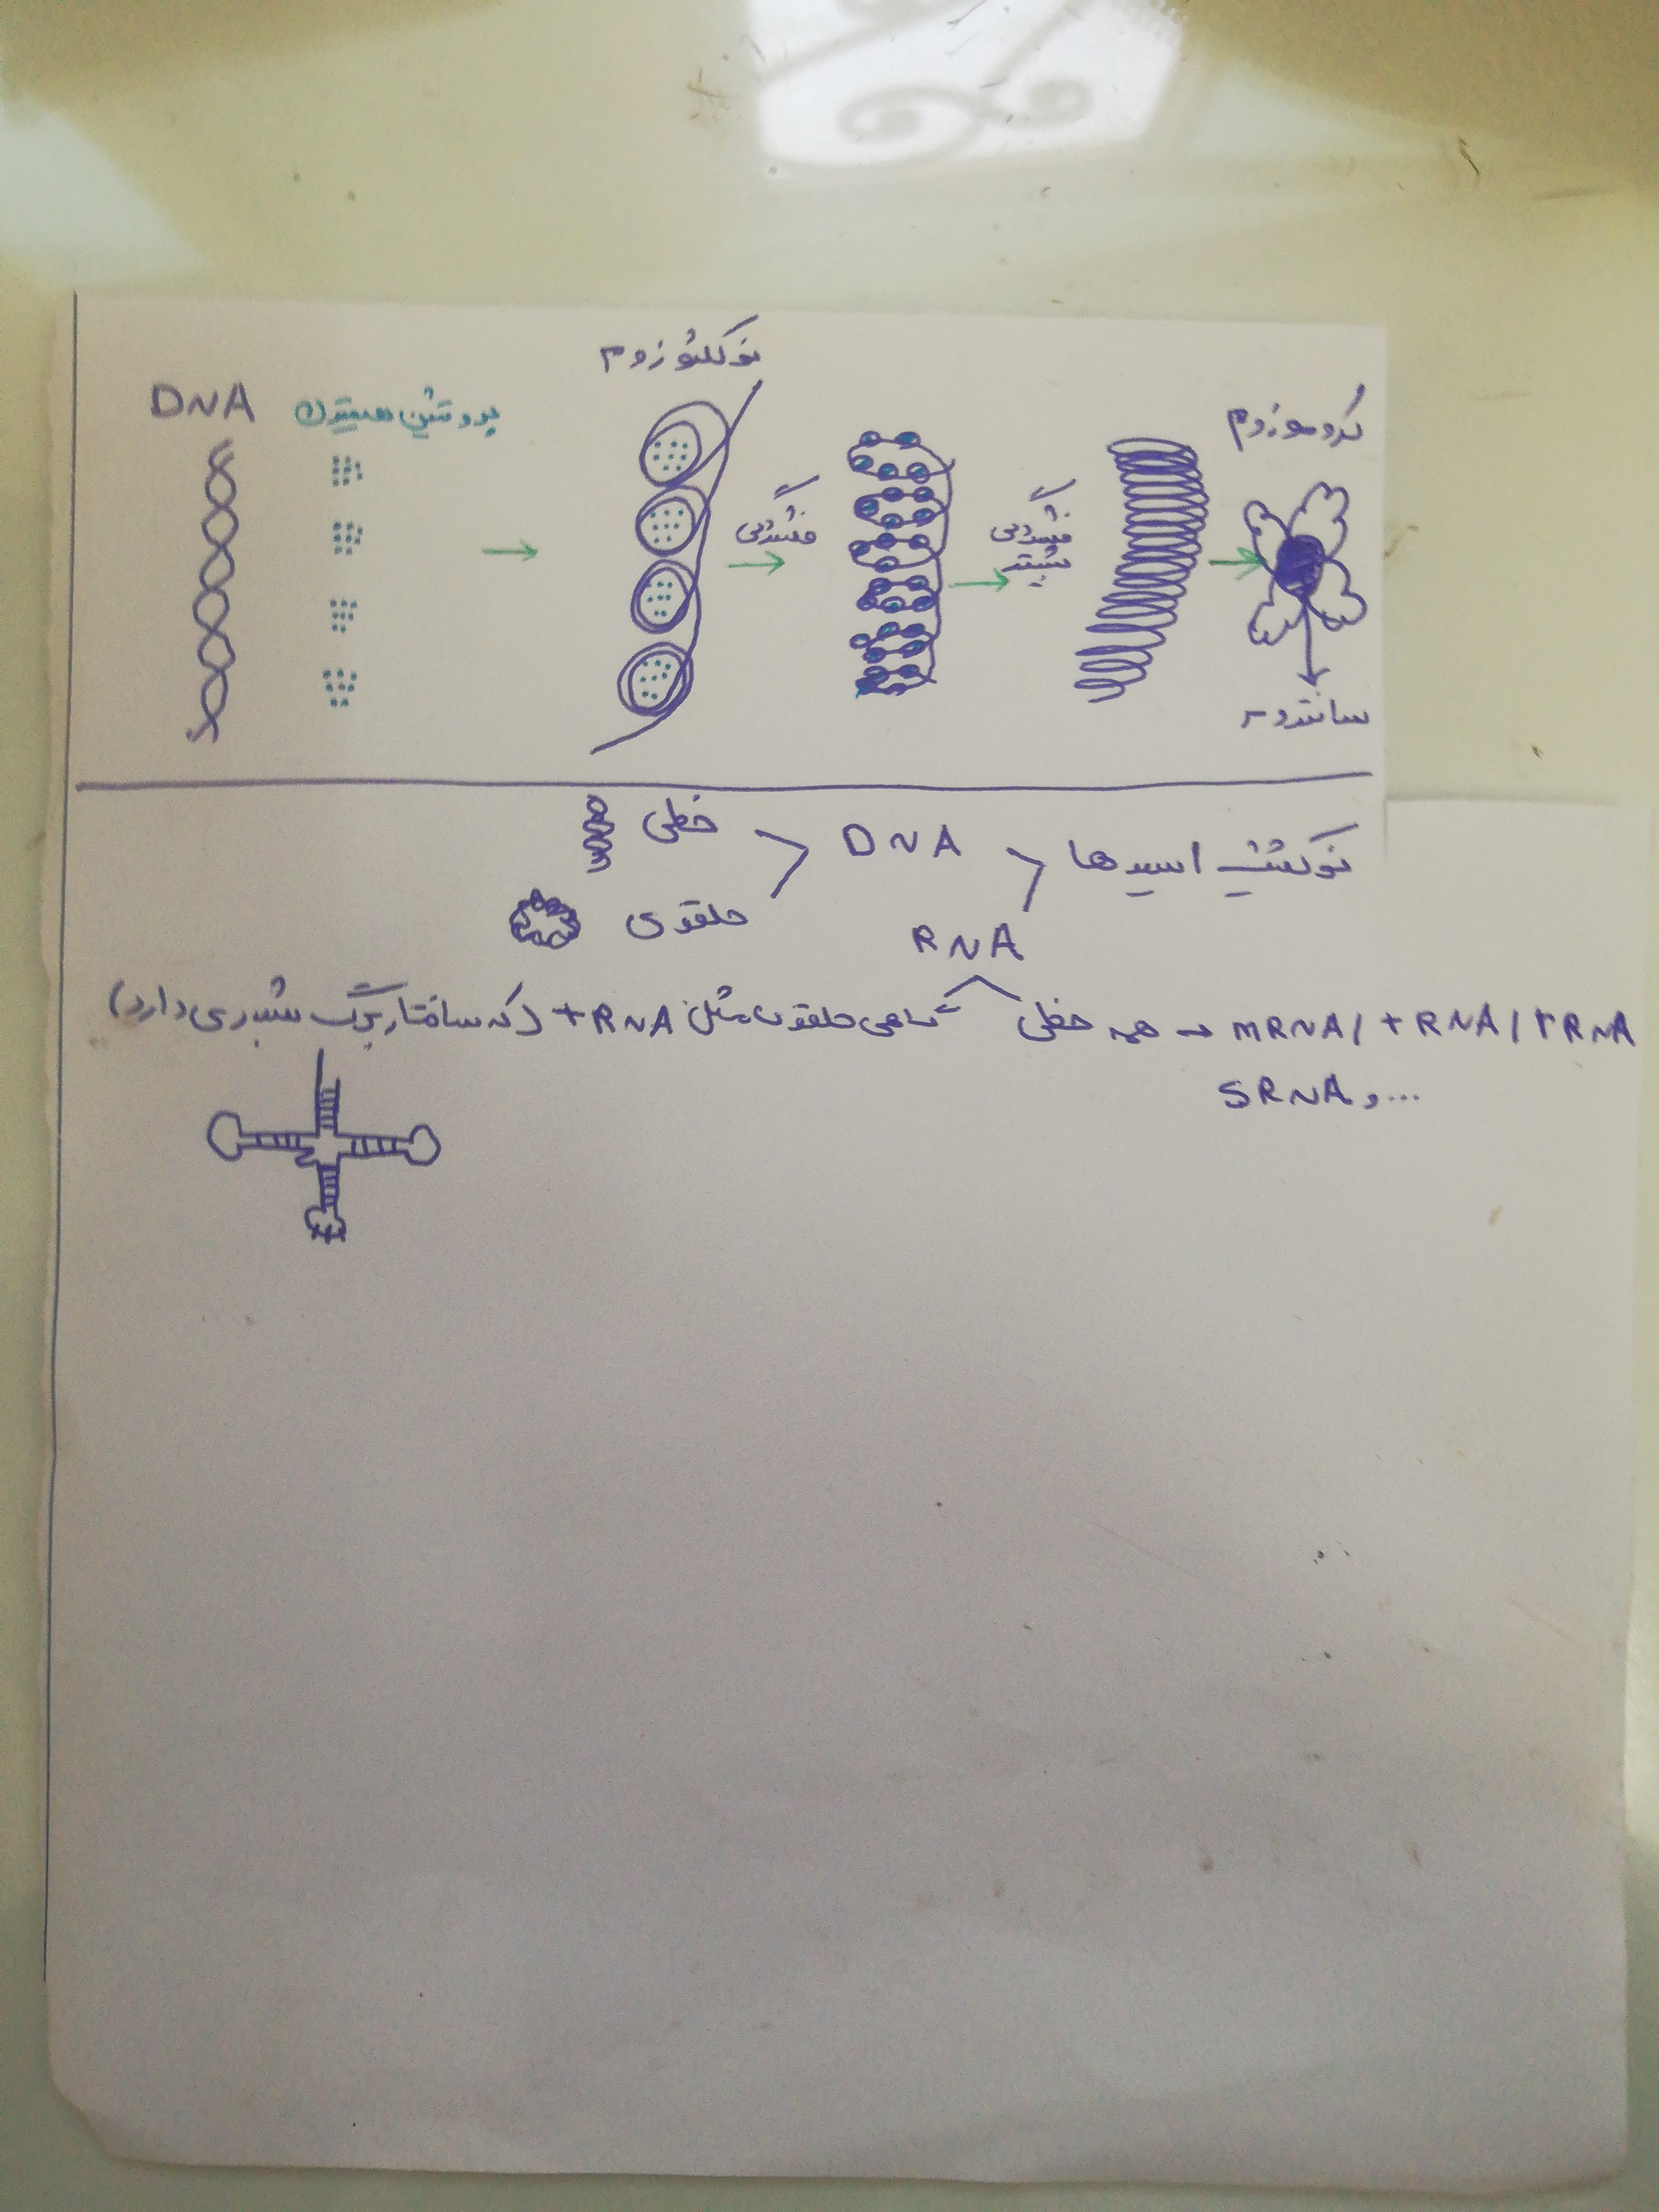 نوکلئوزوم
DNA پروتئین هیستون
کروموزوم
فشردگی
فشردگی بیشتر
سانترومر
نوکلئیک اسیدها
DNA
خطی
حلقوی
RNA
همه خطی → mRNA / tRNA / rRNA
sRNA و ...
گاهی حلقوی مثل tRNA (که ساختار برگ شبدری دارد)